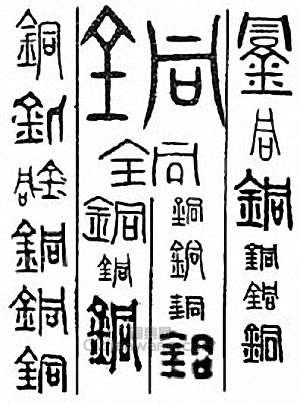 銅銅銅銅銅
銅
銅
銅銅銅
銅銅銅
銅銅銅銅銅